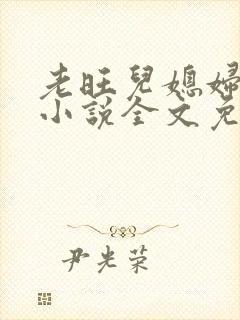 老旺兒媳婦
小說全文免
尹光荣